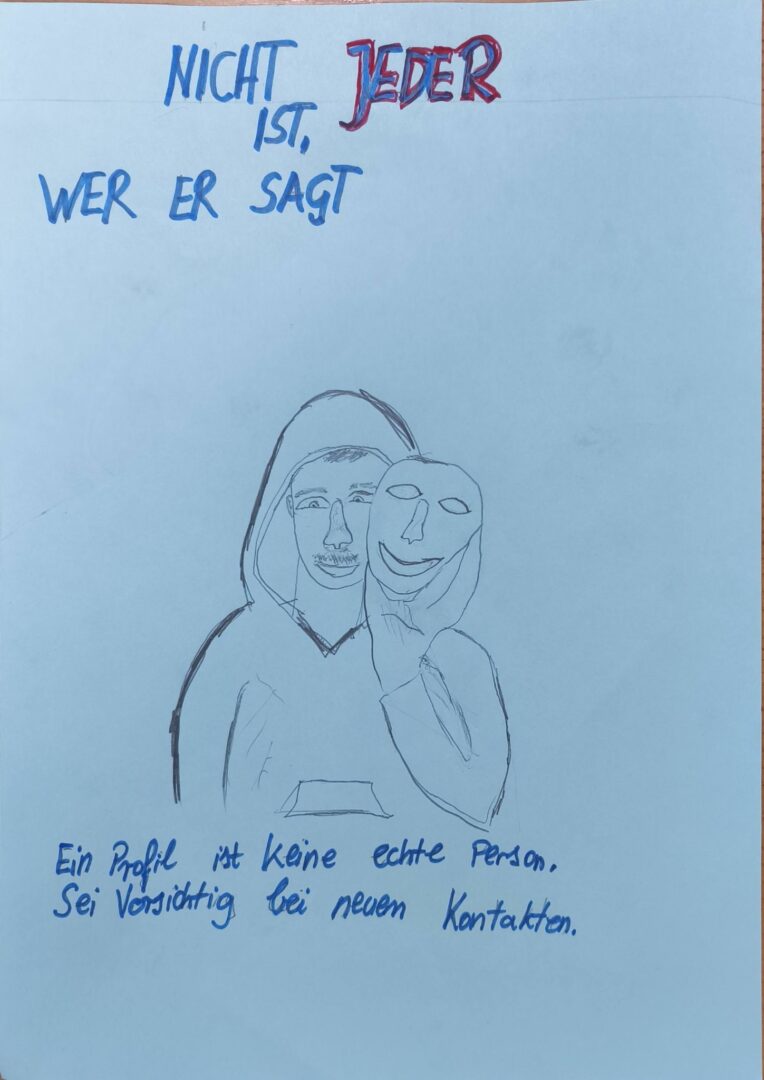 NICHT JEDER
IST,
WER ER SAGT
Ein Profil ist keine echte Person.
Sei Vorsichtig bei neuen Kontakten.